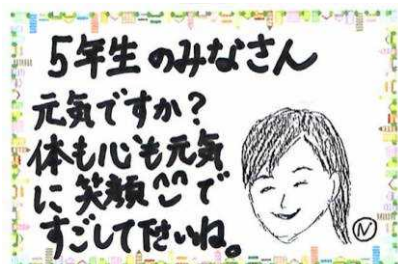 5年生のみなさん
元気ですか?
体も心も元気
に笑顔^^で
すごして下さいね。
N